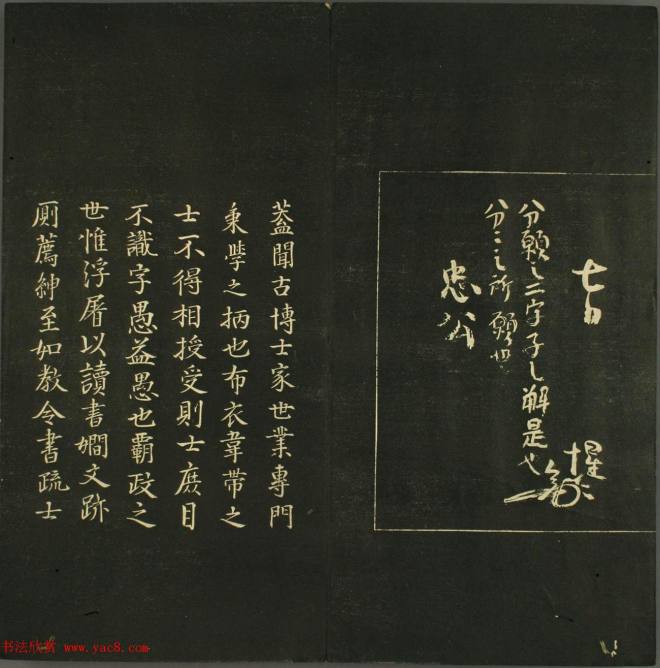 七日
分願之二字子之解是也
分二之所願也
忠公
惺
蓋聞古博士家世業專門
秉學之抦也布衣韋帶之
士不得相授受則士庶目
不識字愚益愚也霸政之
世惟浮屠以讀書嫺文跡
厠薦紳至如教令書疏士
书法欣赏 www.yac8.com